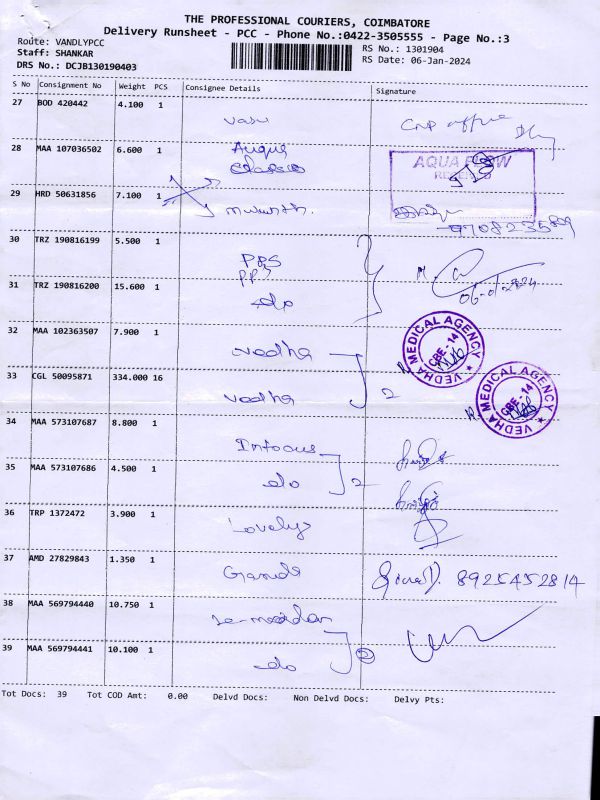 THE PROFESSIONAL COURIERS, COIMBATORE
Delivery Runsheet - PCC - Phone No.:0422-3505555 - Page No.:3
Route: VANDLYPCC
RS No.: 1301904
Staff: SHANKAR
RS Date: 06-Jan-2024
DRS No.: DCJB130190403
S No Consignment No Weight PCS Consignee Details Signature
27 BOD 420442 4.100 1 Vasu
28 MAA 107036502 6.600 1
AQUA FLOW
29 HRD 50631856 7.100 1
30 TRZ 190816199 5.500 1 PPS
31 TRZ 190816200 15.600 1 PPS
do
32 MAA 102363507 7.900 1 vedha
VEDHA MEDICAL AGENCY CBE - 14
33 CGL 50095871 334.000 16 vedha 2
VEDHA MEDICAL AGENCY CBE - 14
34 MAA 573107687 8.800 1 Infocus
35 MAA 573107686 4.500 1 do 2
36 TRP 1372472 3.900 1 Lovely
37 AMD 27829843 1.350 1 8925452814
38 MAA 569794440 10.750 1
39 MAA 569794441 10.100 1 do 2
Tot Docs: 39 Tot COD Amt: 0.00 Delvd Docs: Non Delvd Docs: Delvy Pts: